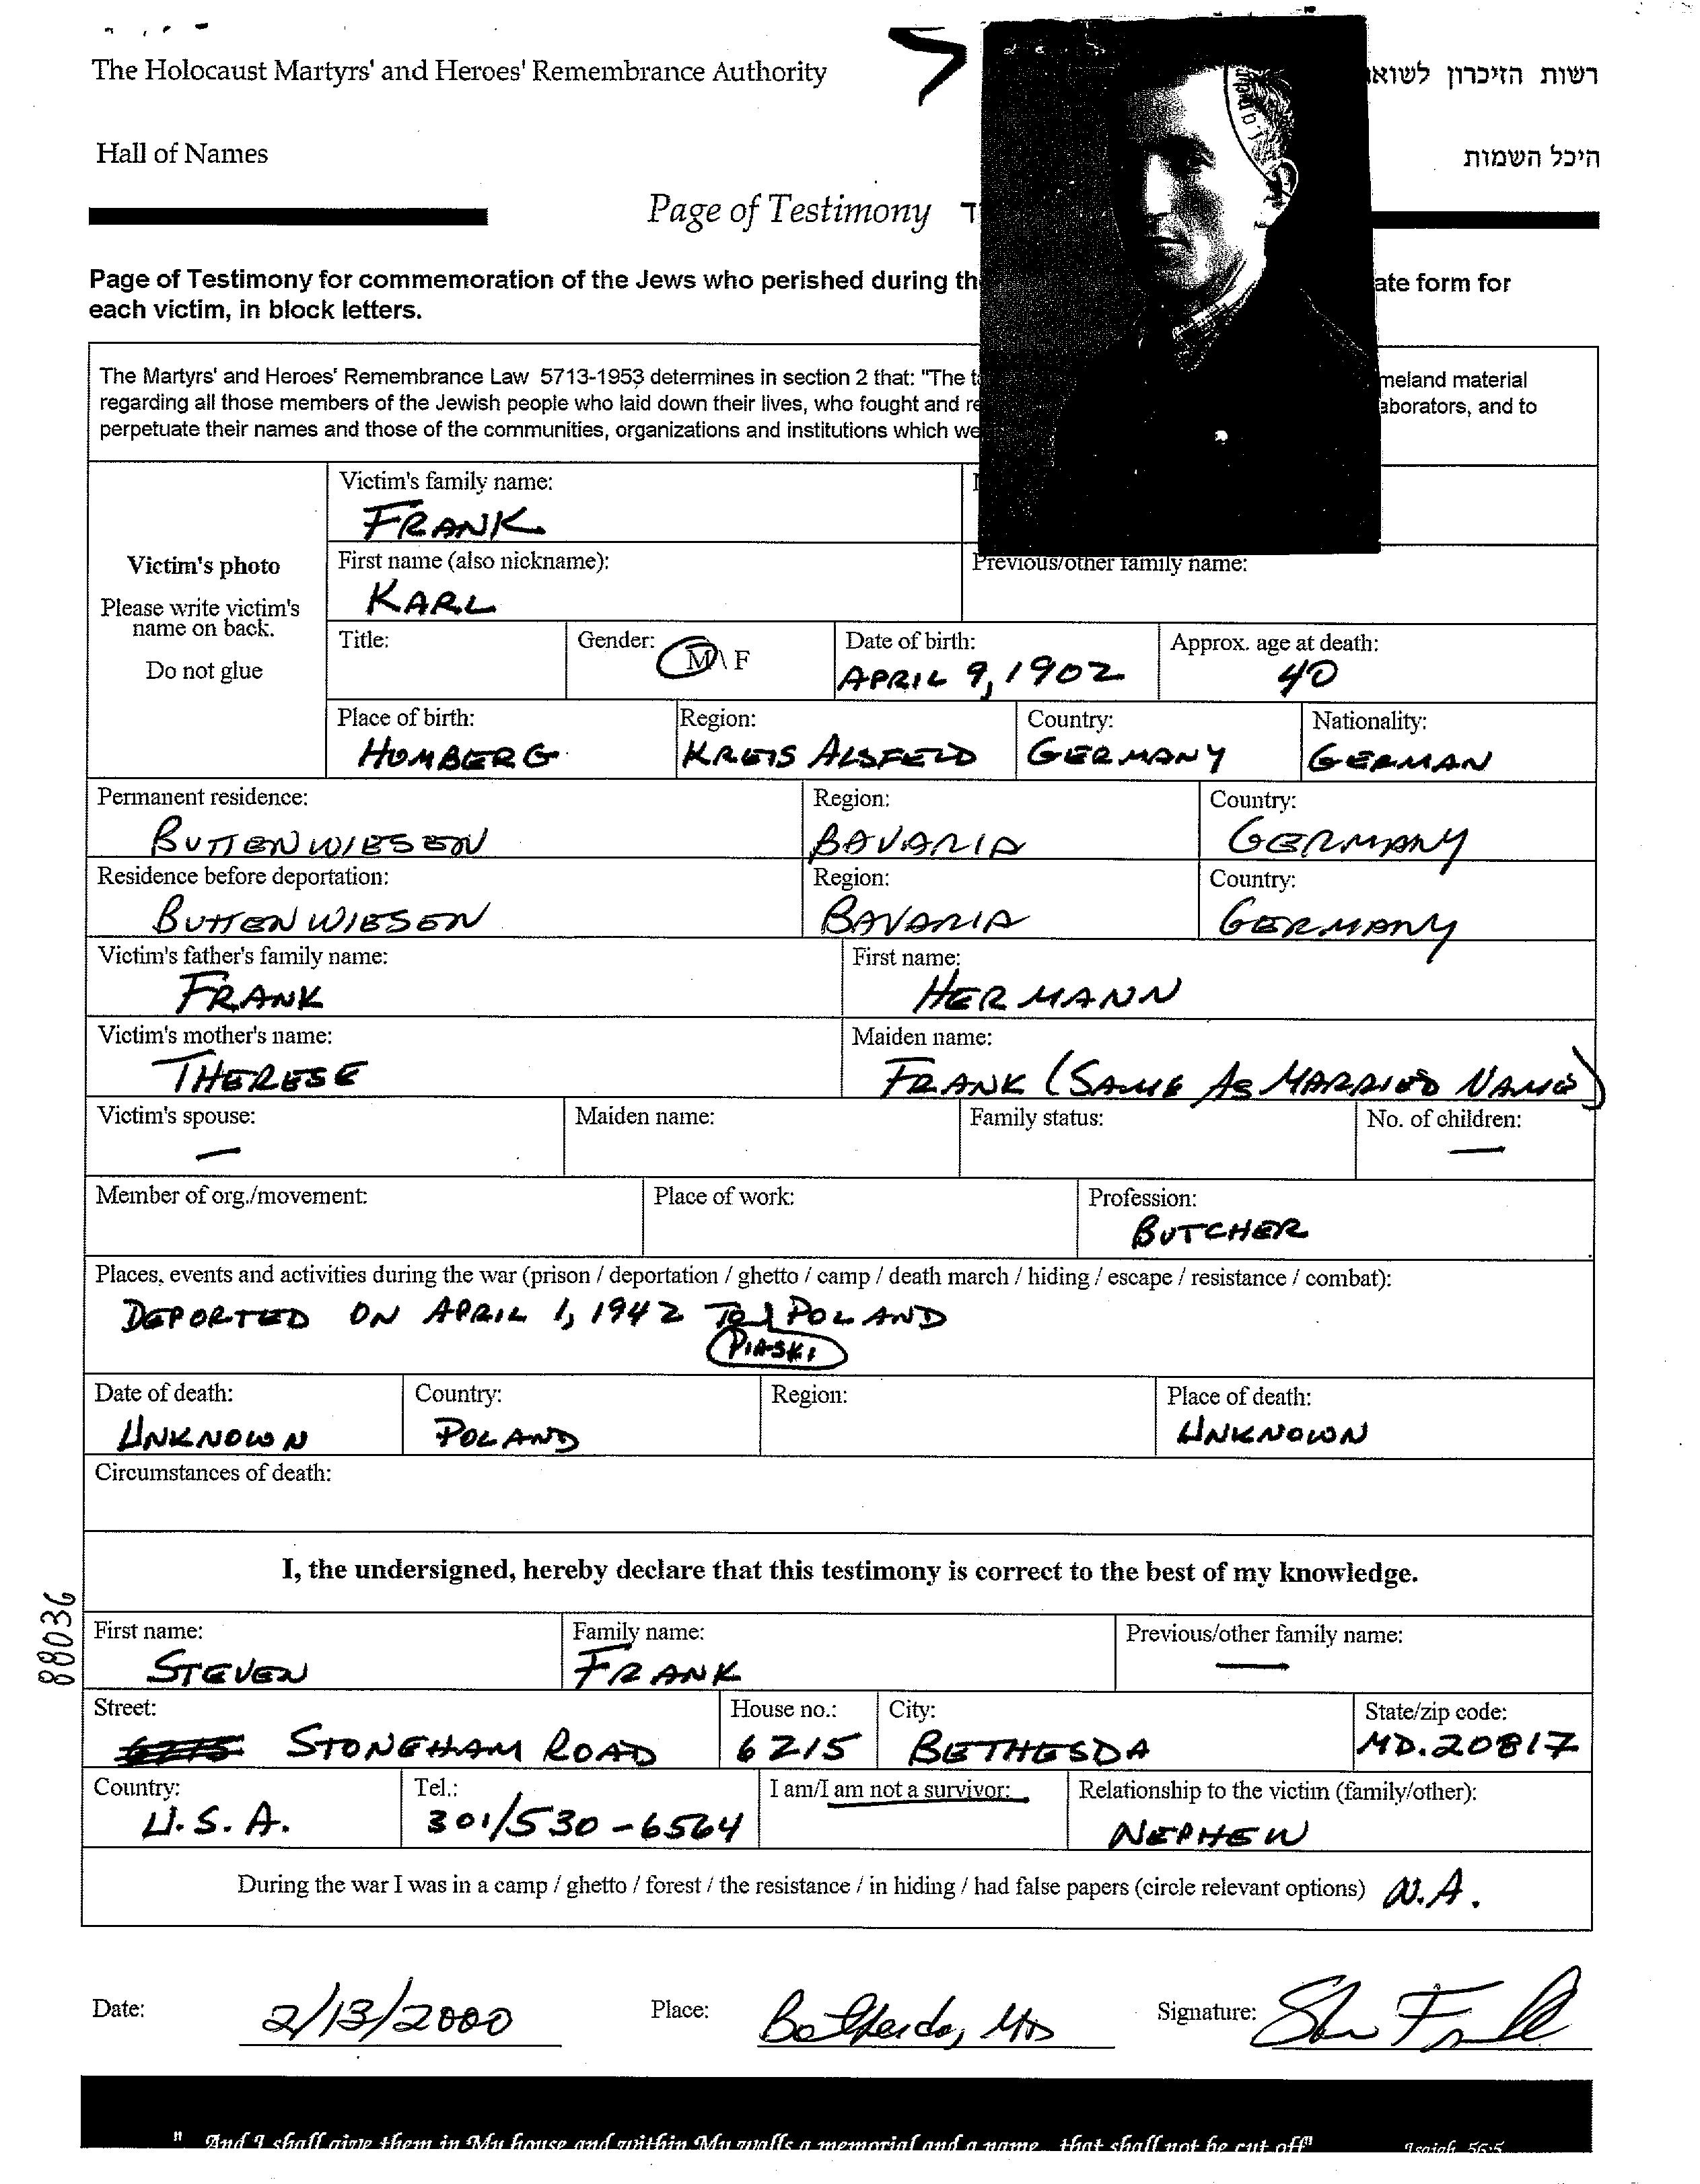 The Holocaust Martyrs' and Heroes' Remembrance Authority
רשות הזיכרון לשוא
Hall of Names
היכל השמות
Page of Testimony
Page of Testimony for commemoration of the Jews who perished during th ate form for
each victim, in block letters.
The Martyrs' and Heroes' Remembrance Law 5713-1953 determines in section 2 that: "The t meland material
regarding all those members of the Jewish people who laid down their lives, who fought and re aborators, and to
perpetuate their names and those of the communities, organizations and institutions which we
Victim's photo
Please write victim's
name on back.
Do not glue
Victim's family name:
FRANK
First name (also nickname): Previous/other family name:
KARL
Title: Gender: M\F Date of birth: Approx. age at death:
APRIL 9, 1902 40
Place of birth: Region: Country: Nationality:
HOMBERG KREIS ALSFELD GERMANY GERMAN
Permanent residence: Region: Country:
BUTTENWIESEN BAVARIA GERMANY
Residence before deportation: Region: Country:
BUTTENWIESEN BAVARIA GERMANY
Victim's father's family name: First name:
FRANK HERMANN
Victim's mother's name: Maiden name:
THERESE FRANK (SAME AS MARRIED NAME)
Victim's spouse: Maiden name: Family status: No. of children:
— —
Member of org./movement: Place of work: Profession:
BUTCHER
Places, events and activities during the war (prison / deportation / ghetto / camp / death march / hiding / escape / resistance / combat):
DEPORTED ON APRIL 1, 1942 TO POLAND
PIASKI
Date of death: Country: Region: Place of death:
UNKNOWN POLAND UNKNOWN
Circumstances of death:
I, the undersigned, hereby declare that this testimony is correct to the best of my knowledge.
88036
First name: Family name: Previous/other family name:
STEVEN FRANK —
Street: House no.: City: State/zip code:
6215 STONEHAM ROAD 6215 BETHESDA MD. 20817
Country: Tel.: I am/I am not a survivor: Relationship to the victim (family/other):
U.S.A. 301/530-6564 NEPHEW
During the war I was in a camp / ghetto / forest / the resistance / in hiding / had false papers (circle relevant options) N.A.
Date: 2/13/2000 Place: Bethesda, MD Signature: Steven Frank
" And I shall give them in My house and within My walls a memorial and a name...that shall not be cut off" Isaiah 56:5